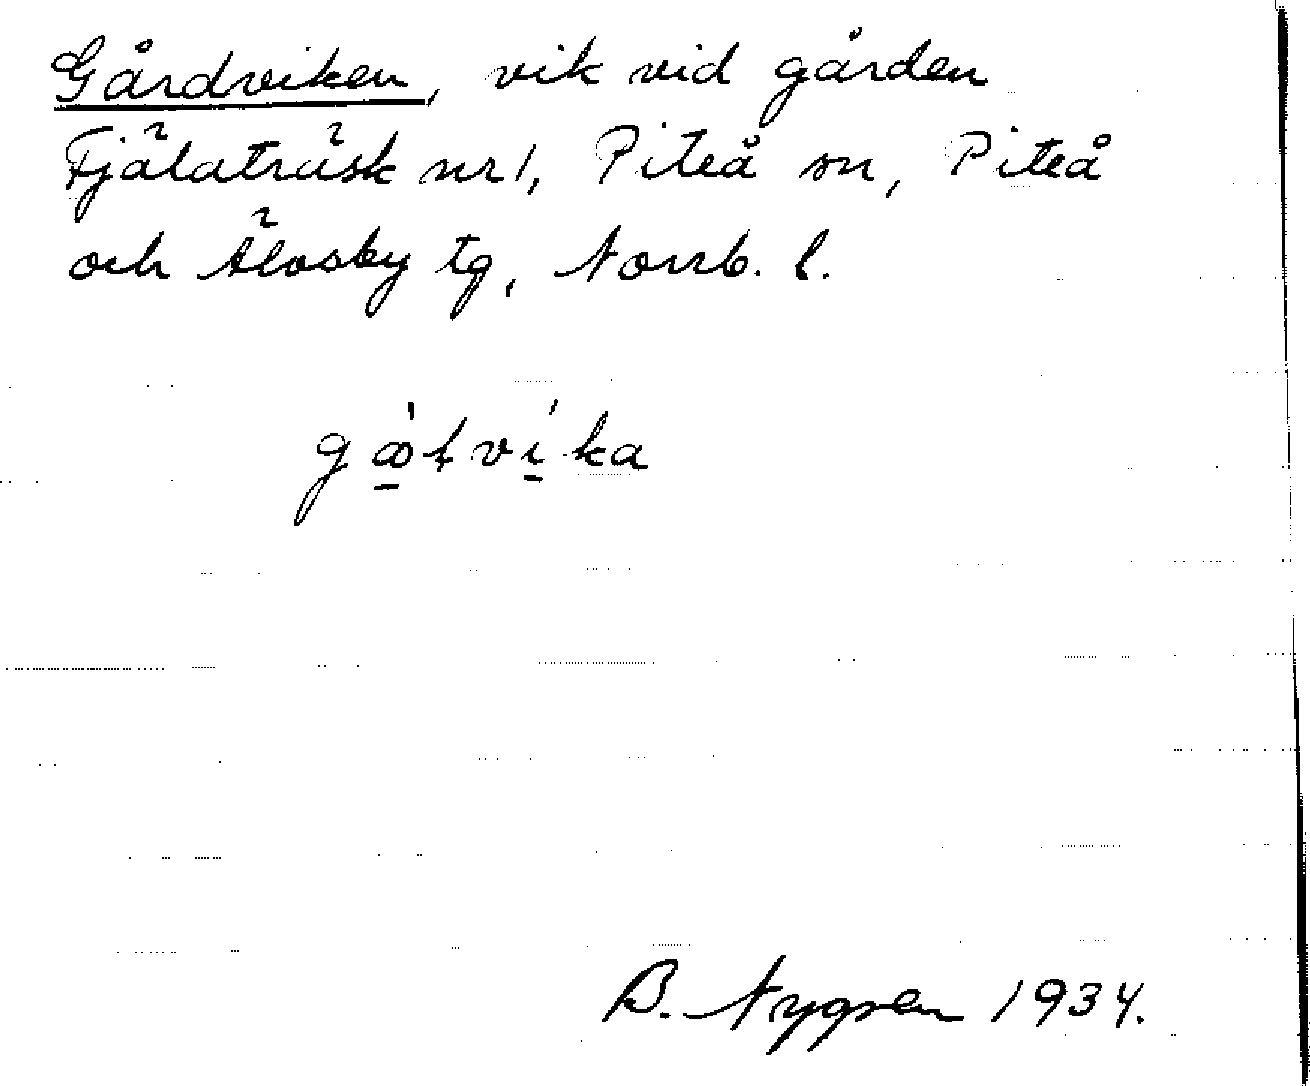 Gårdviken, vik vid gården
Fjälaträsk nr 1, Piteå sn, Piteå
och Älvsby tg, Norrb. l.
B. Nygren 1934.